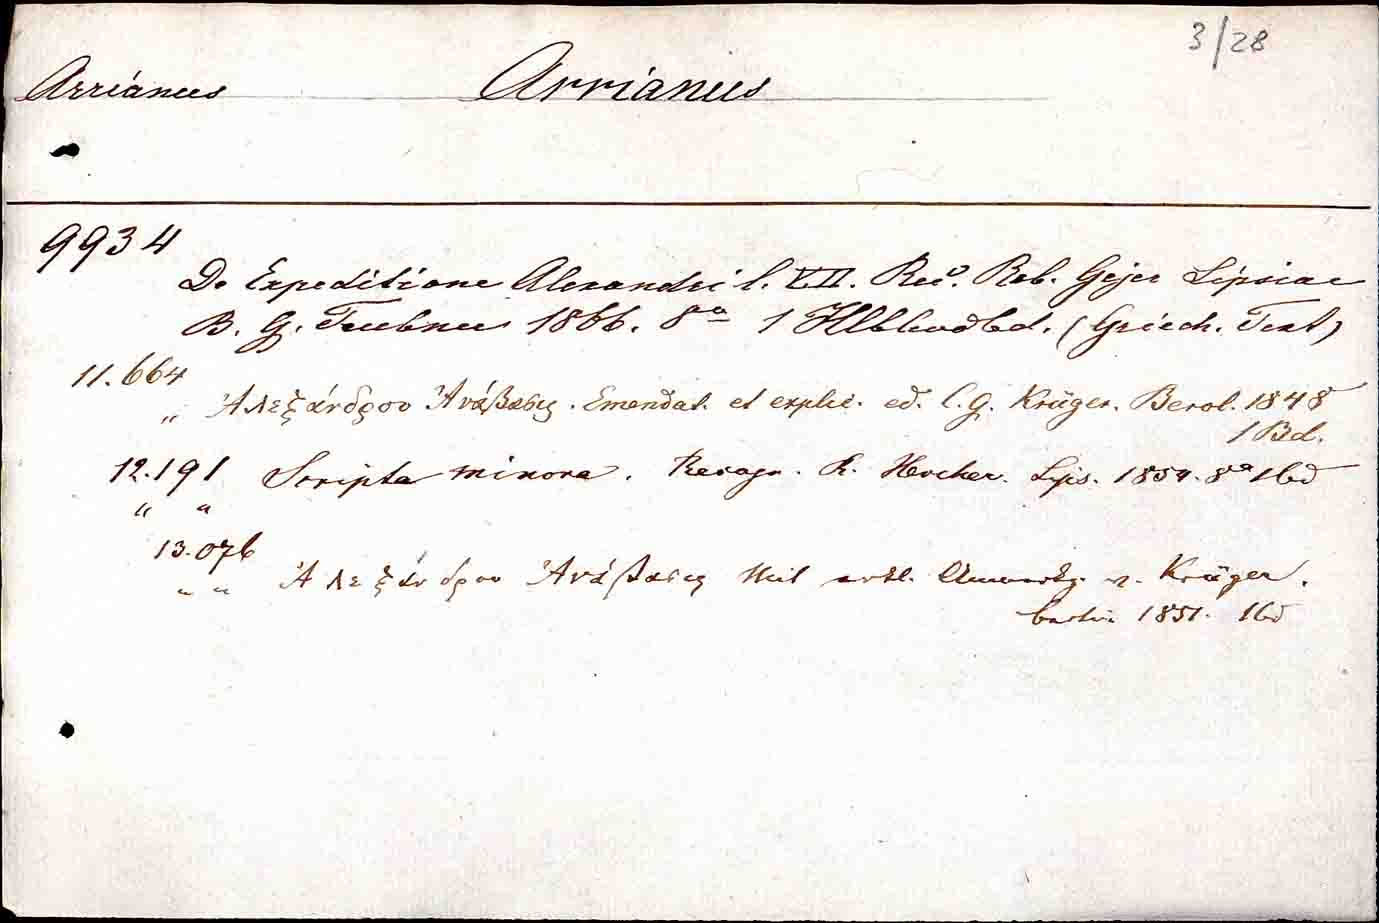 3/28
Arrianus Arrianus
9934
De Expeditione Alexandri l. VII. Rec. Rob. Gejer Lipsiae
B. G. Teubner 1866. 8º 1 Hlblwdbd. (Griech. Text)
11.664
„ Ἀλεξάνδρου Ἀνάβασις. Emendat. et explic. ed. C. G. Krüger. Berol. 1848
1 Bd.
12.191 Scripta minora. Recogn. R. Hercher. Lips. 1854. 8º 1bd
„ „
13.076
„ „ Ἀλεξάνδρου Ἀνάβασις Mit erkl. Anmerkg. v. Krüger.
Berlin 1851. 1bd